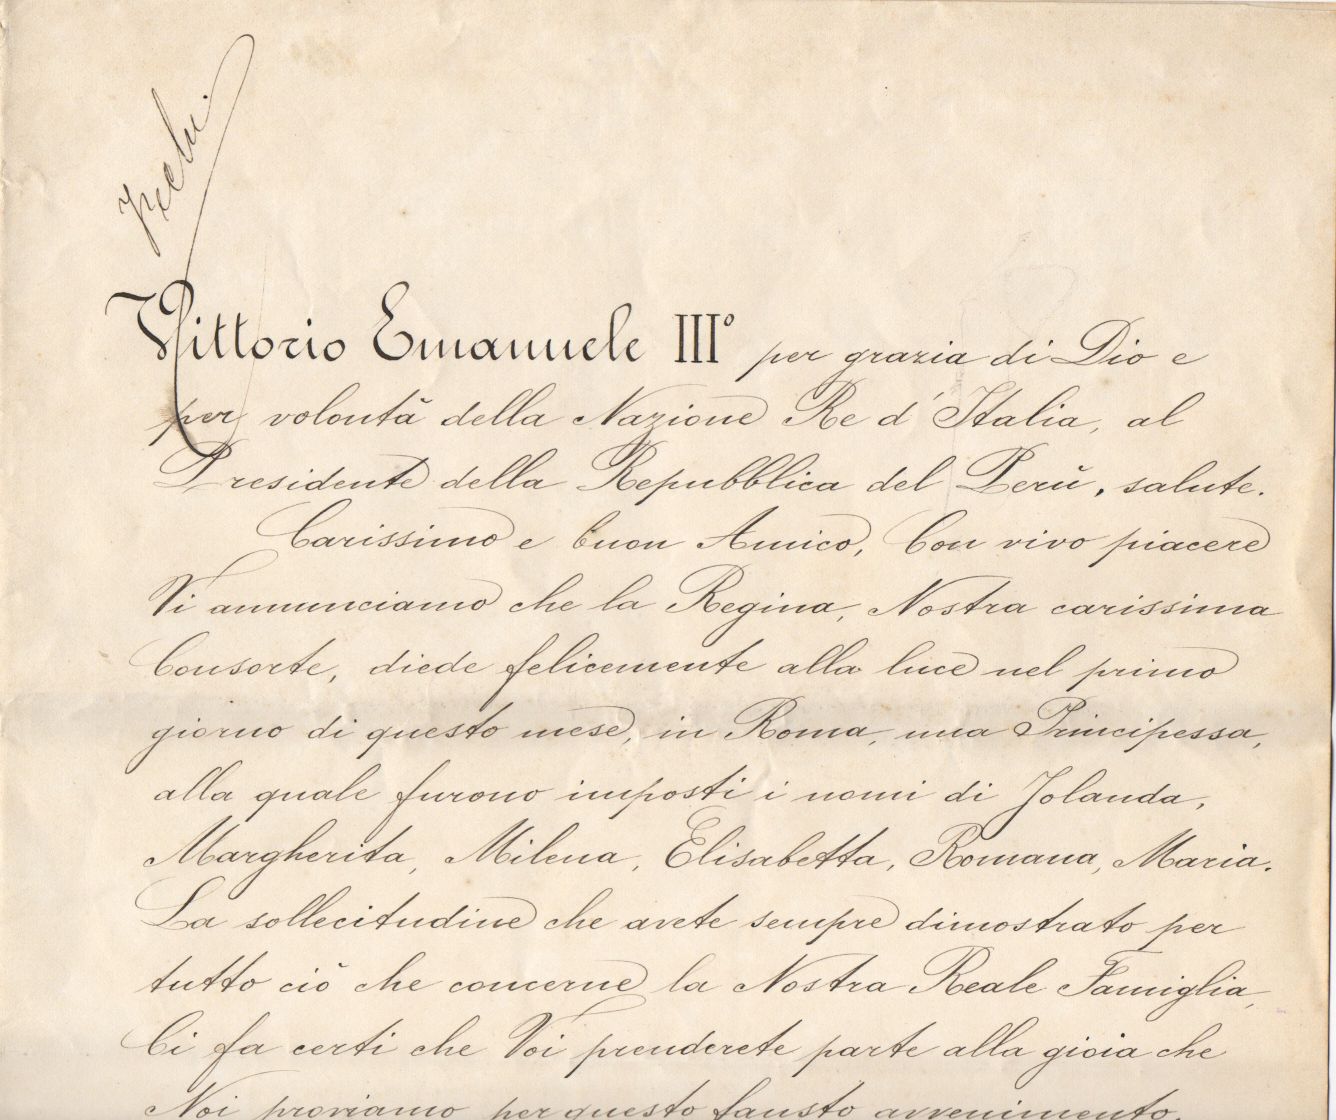 Vittorio Emanuele III° per grazia di Dio e
per volontà della Nazione Re d'Italia, al
Presidente della Repubblica del Perù, salute.
Carissimo e buon Amico, Con vivo piacere
Vi annunciamo che la Regina, Nostra carissima
Consorte, diede felicemente alla luce nel primo
giorno di questo mese, in Roma, una Principessa,
alla quale furono imposti i nomi di Jolanda,
Margherita, Milena, Elisabetta, Romana, Maria.
La sollecitudine che avete sempre dimostrato per
tutto ciò che concerne la Nostra Reale Famiglia,
Ci fa certi che Voi prenderete parte alla gioia che
Noi proviamo per questo fausto avvenimento.